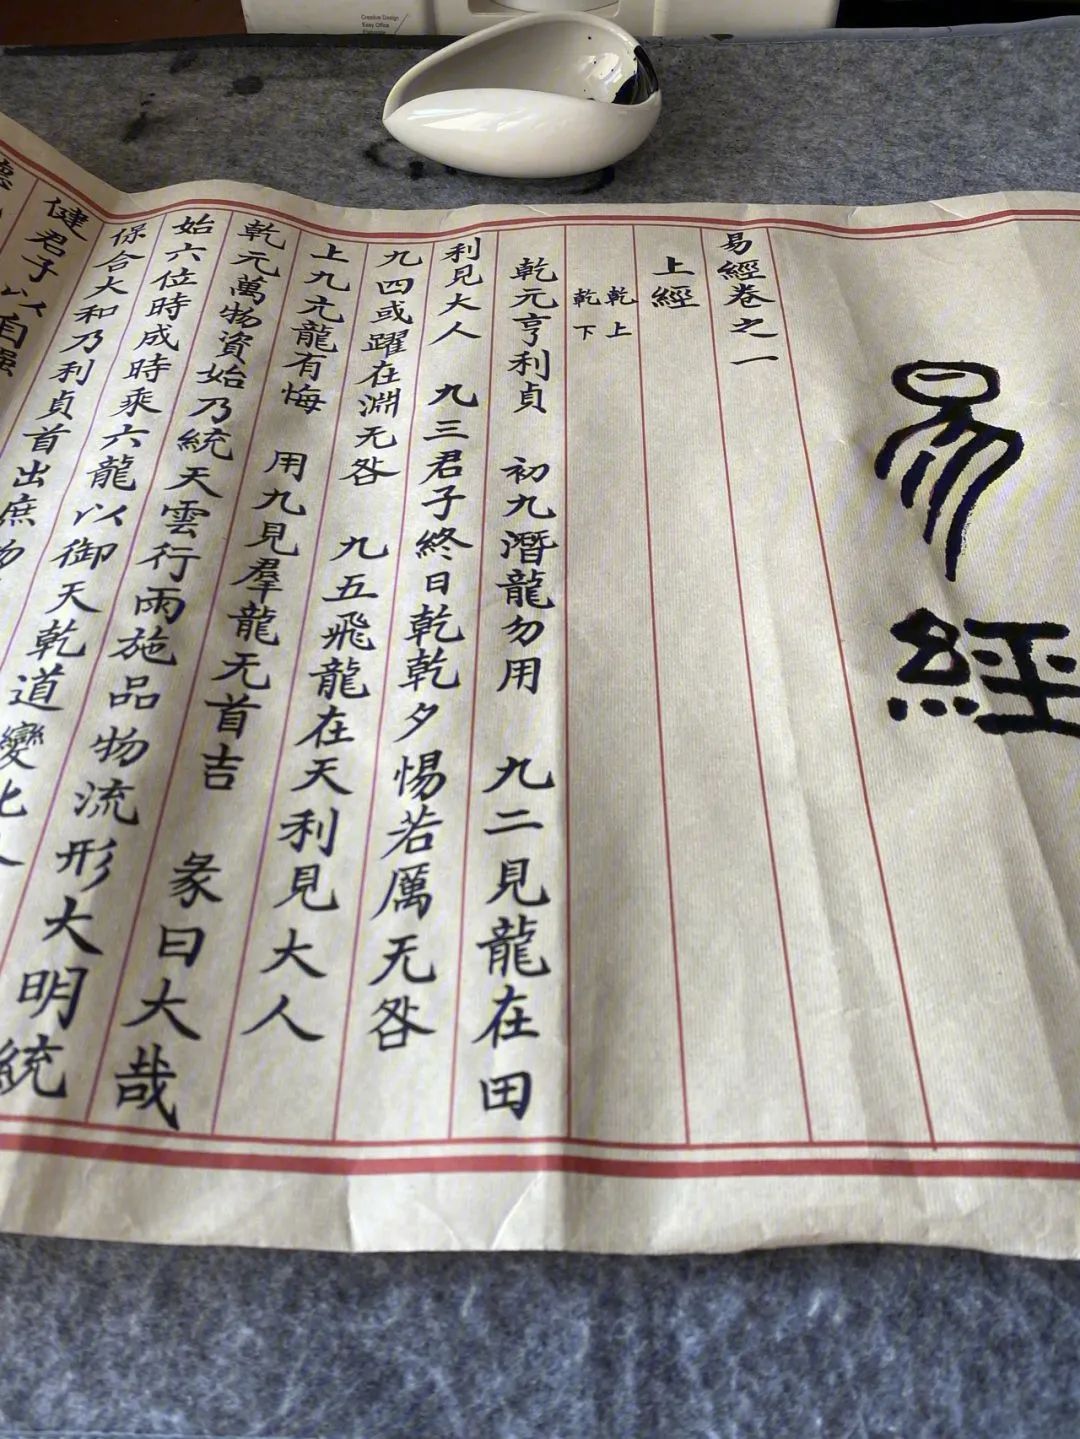 易經
易經卷之一
上經
乾上
乾下
乾元亨利貞 初九潛龍勿用 九二見龍在田
利見大人 九三君子終日乾乾夕惕若厲无咎
九四或躍在淵无咎 九五飛龍在天利見大人
上九亢龍有悔 用九見羣龍无首吉 彖曰大哉
乾元萬物資始乃統天雲行雨施品物流形大明統
始六位時成時乘六龍以御天乾道變化
保合大和乃利貞首出庶物
健君子以自強
德
Creative Design
Easy Office